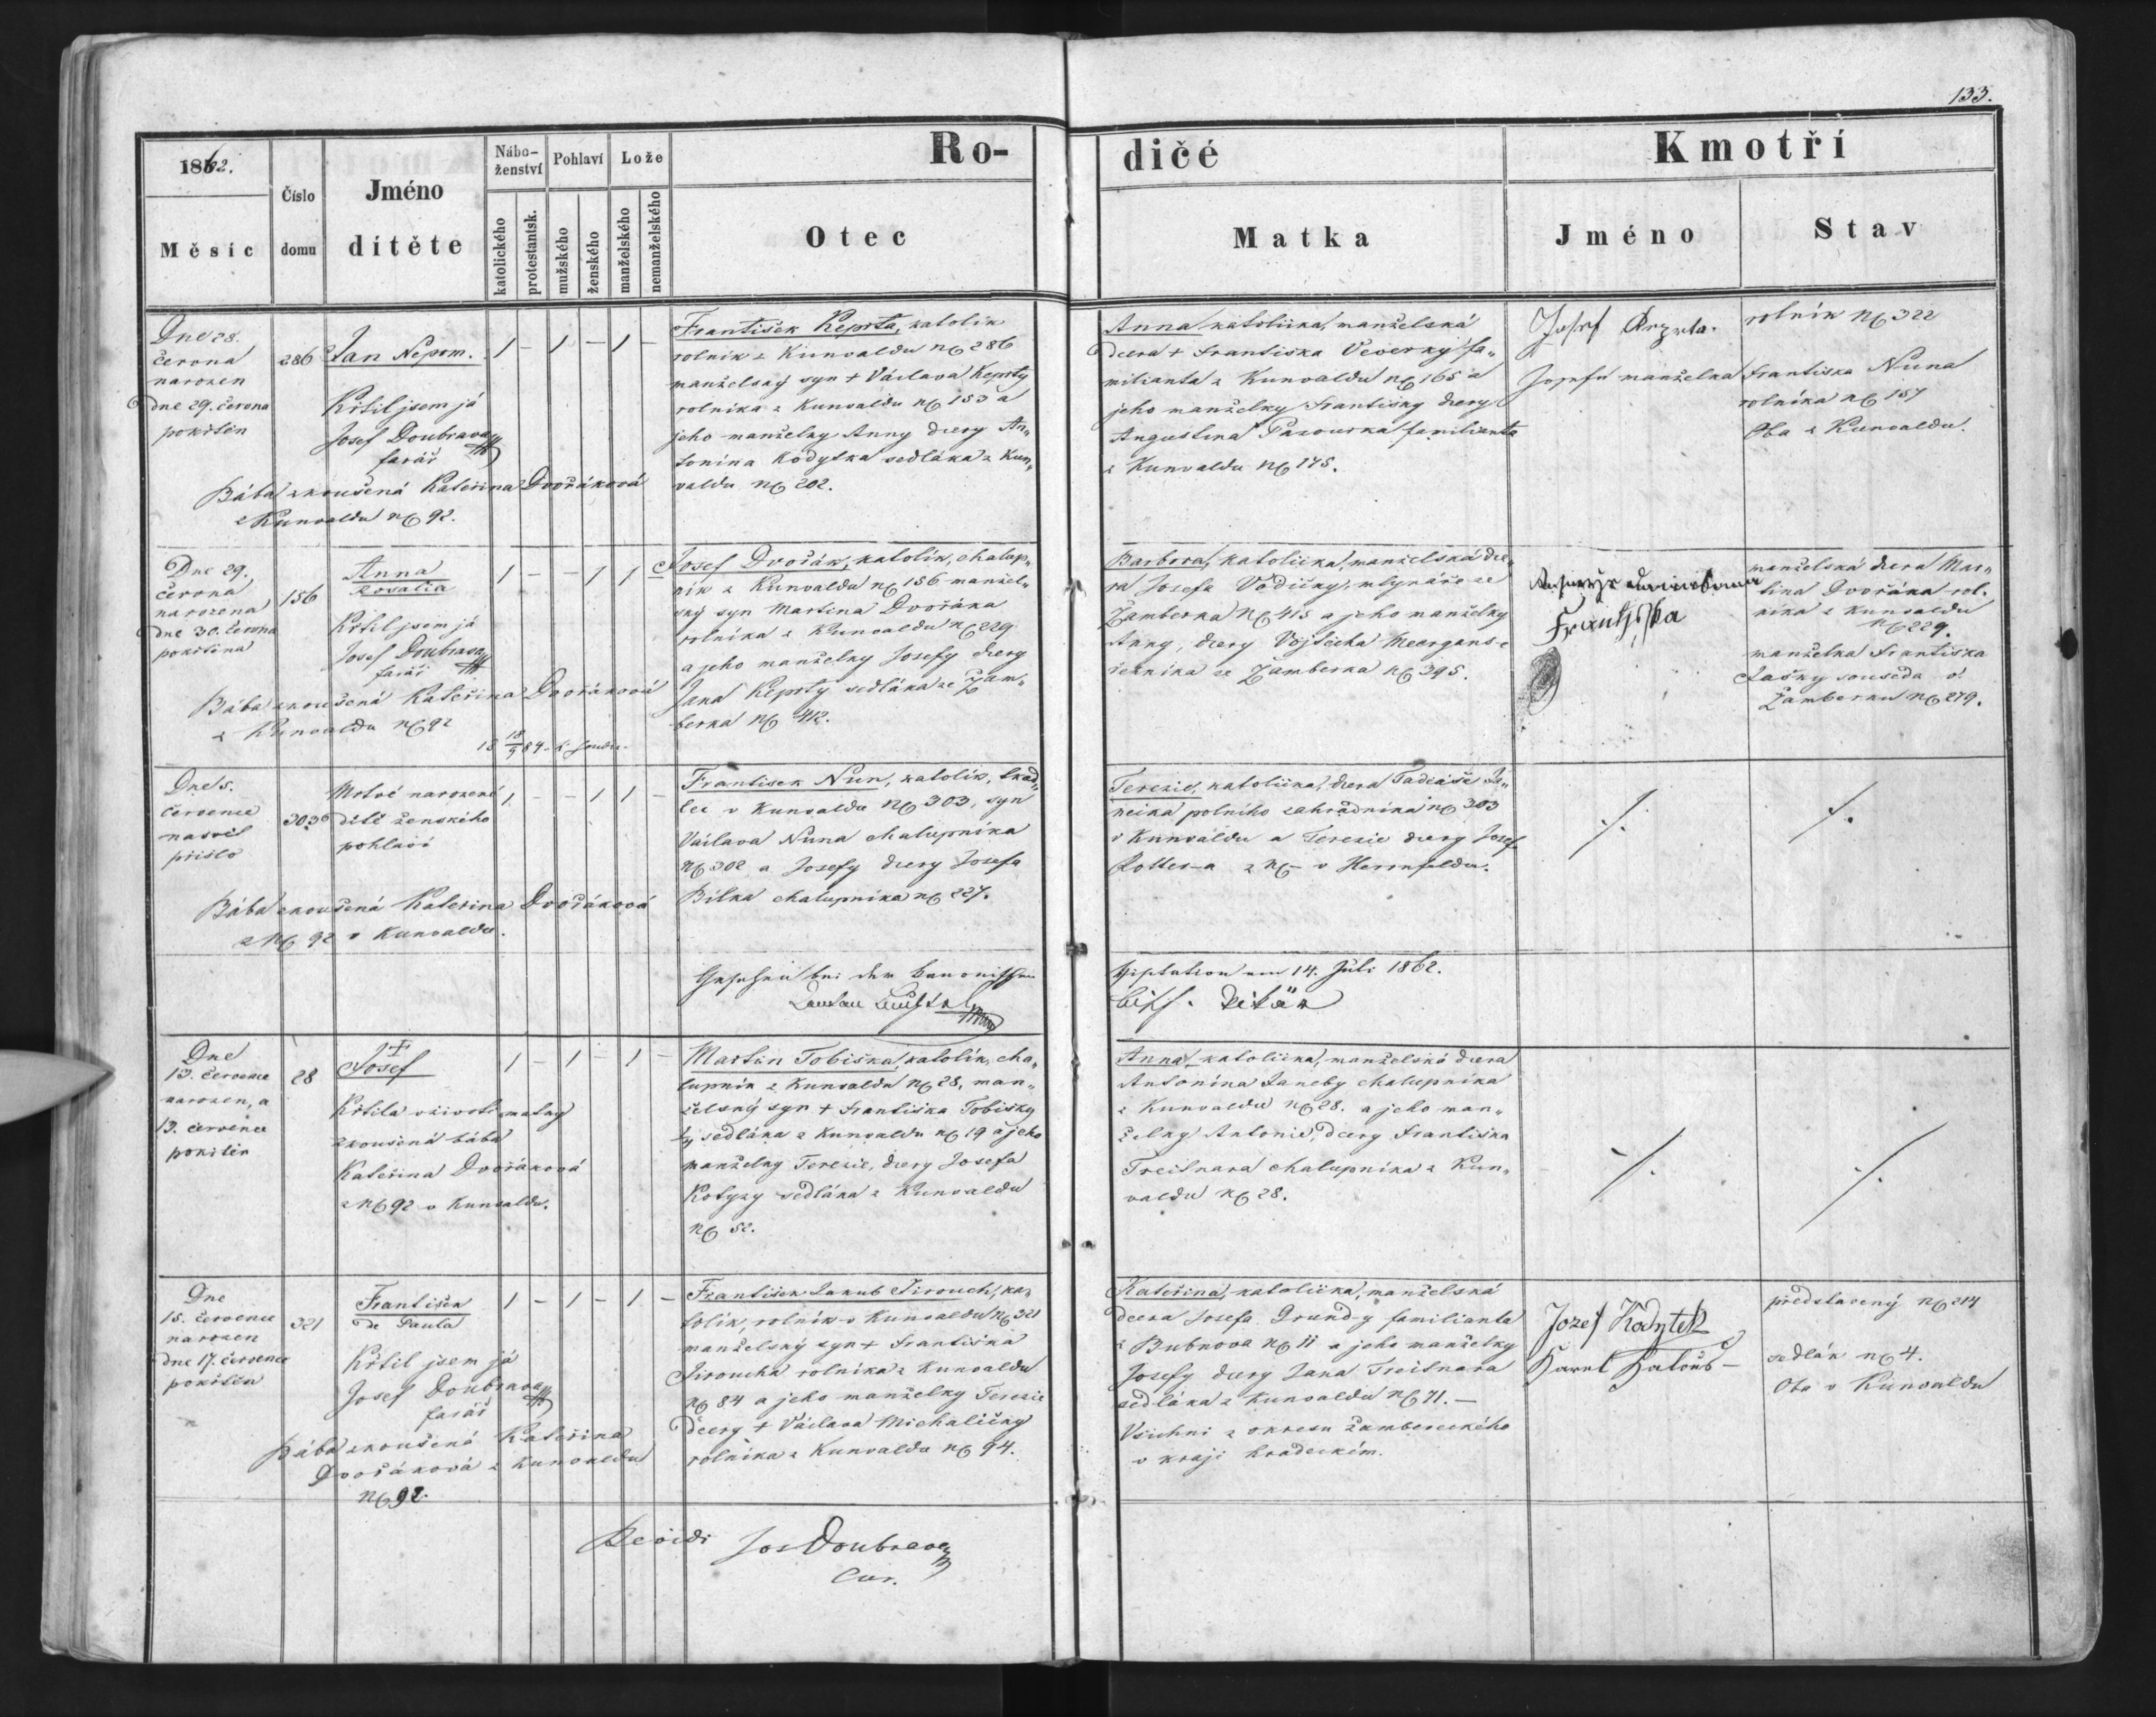 133.
1862.
Měsíc
Číslo domu
Jméno dítěte
Nábo-ženství
katolického
protestantsk.
Pohlaví
mužského
ženského
Lože
manželského
nemanželského
Ro-
dičé
Otec
Matka
Kmotří
Jméno
Stav
Dne 28.
června
narozen
dne 29. června
pokřtěn
286
Jan Nepom.
Křtil jsem já
Josef Doubrava
farář
Bába zkoušená Kateřina Dvořáková
z Kunvaldu N 92.
1 – 1 – 1 –
František Keprta, katolík
rolník z Kunvaldu N 286
manželský syn + Václava Keprty
rolníka z Kunvaldu N 153 a
jeho manželky Anny dcery An„
tonína Kodytka sedláka z Kun„
valdu N 202.
Anna katolička, manželská
dcera + Františka Veverky fa„
milianta z Kunvaldu N 165 a
jeho manželky Františky dcery
Augustina Pazourka familianta
z Kunvaldu N 175.
Josef Keprta.
Josefa manželka
rolník N 322
Františka Nuna
rolníka N 157
Oba z Kunvaldu.
Dne 29.
června
narozena
dne 30. června
pokřtěna
156
Anna
Rosalia
Křtil jsem já
Josef Doubrava
farář
Bába zkoušená Kateřina Dvořáková
z Kunvaldu N 92
1 – – 1 1 –
Josef Dvořák, katolík, chalup„
ník z Kunvaldu N 156 manžel„
ský syn Martina Dvořáka
rolníka z Kunvaldu N 229
a jeho manželky Josefy dcery
Jana Keprty sedláka ze Žam„
berka N 412.
Barbora, katolička, manželská dce„
ra Josefa Vodičky, mlynáře ze
Žamberka N 415 a jeho manželky
Anny, dcery Vojtěcha
řezníka ze Žamberka N 395.
Frantisska
manželská dcera Mar„
tina Dvořáka rol„
níka z Kunvaldu
N 229.
manželka Františka
souseda v
Žamberku N 279.
Dne 5.
července
na svět
přišlo
303
Mrtvě narozené
dítě ženského
pohlaví
Bába zkoušená Kateřina Dvořáková
z N 92 v Kunvaldu.
1 – – 1 1 –
František Nun, katolík, tkad„
lec v Kunvaldu N 303, syn
Václava Nuna chalupníka
N 302 a Josefy dcery Josefa
Bílka chalupníka N 227.
Terezie, katolička, dcera Tadeáše
polního zahradníka N 303
v Kunvaldu a Terezie dcery Josefa
z N – v Herrnfeldu.
Gesehen bei der kanonischen
Visitation am 14. Juli 1862.
Bisch. Vikär
Dne
13. července
narozen, a
13. července
pokřtěn
28
†
Josef
Křtila v životě matky
zkoušená bába
Kateřina Dvořáková
z N 92 v Kunvaldu.
1 – 1 – 1 –
Martin Tobiška, katolík, cha„
lupník z Kunvaldu N 28, man„
želský syn + Františka Tobišky
sedláka z Kunvaldu N 19 a jeho
manželky Terezie, dcery Josefa
Kotyzy sedláka z Kunvaldu
N 52.
Anna, katolička, manželská dcera
Antonína Janeby chalupníka
z Kunvaldu N 28. a jeho man„
želky Antonie, dcery Františka
Treitnara chalupníka z Kun„
valdu N 28.
Dne
15. července
narozen
dne 17. července
pokřtěn
321
František
de Paula
Křtil jsem já
Josef Doubrava
farář
Bába zkoušená Kateřina
Dvořáková z Kunvaldu
N 92.
1 – 1 – 1 –
František Jakub Jirouch, ka„
tolík, rolník v Kunvaldu N 321
manželský syn + Františka
Jiroucha rolníka z Kunvaldu
N 84 a jeho manželky Terezie
dcery + Václava Michaličky
rolníka z Kunvaldu N 94.
Kateřina, katolička, manželská
dcera Josefa Grund-y familianta
z Bubnova N 11 a jeho manželky
Josefy dcery Jana Treitnara
sedláka z Kunvaldu N 71. –
Všichni z okresu žambereckého
v kraji hradeckém.
Jozef Kodytek
Karel Kaloůs –
představený N 214
sedlák N 4.
Oba v Kunvaldu
Revidi Jos Doubrava
Cur.